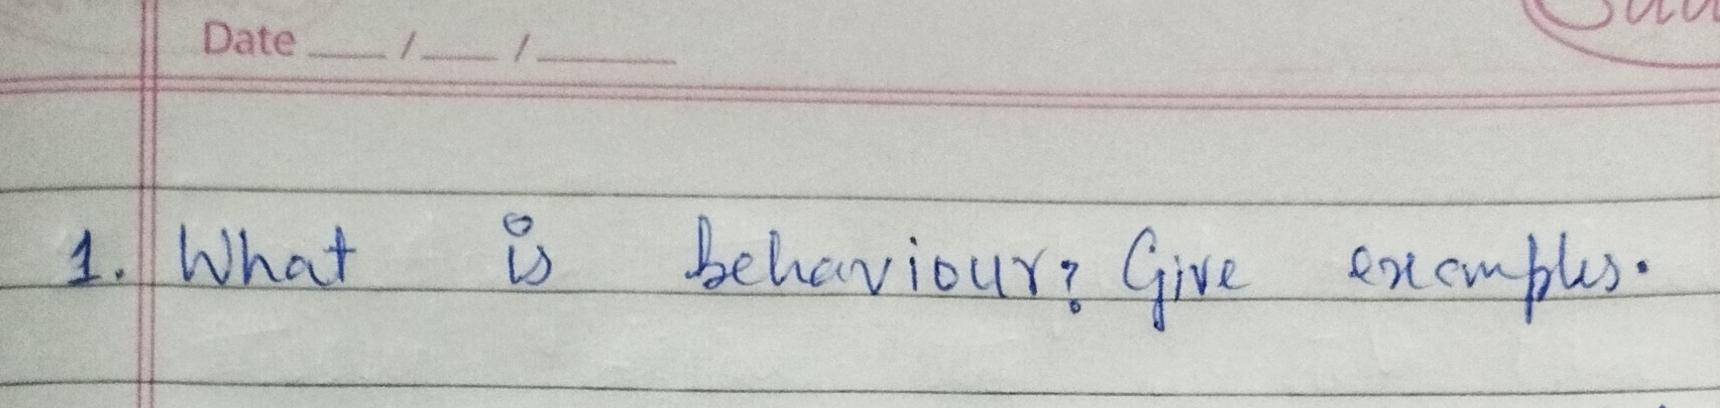 Date ___/___/_____
1. What is behaviour? Give examples.